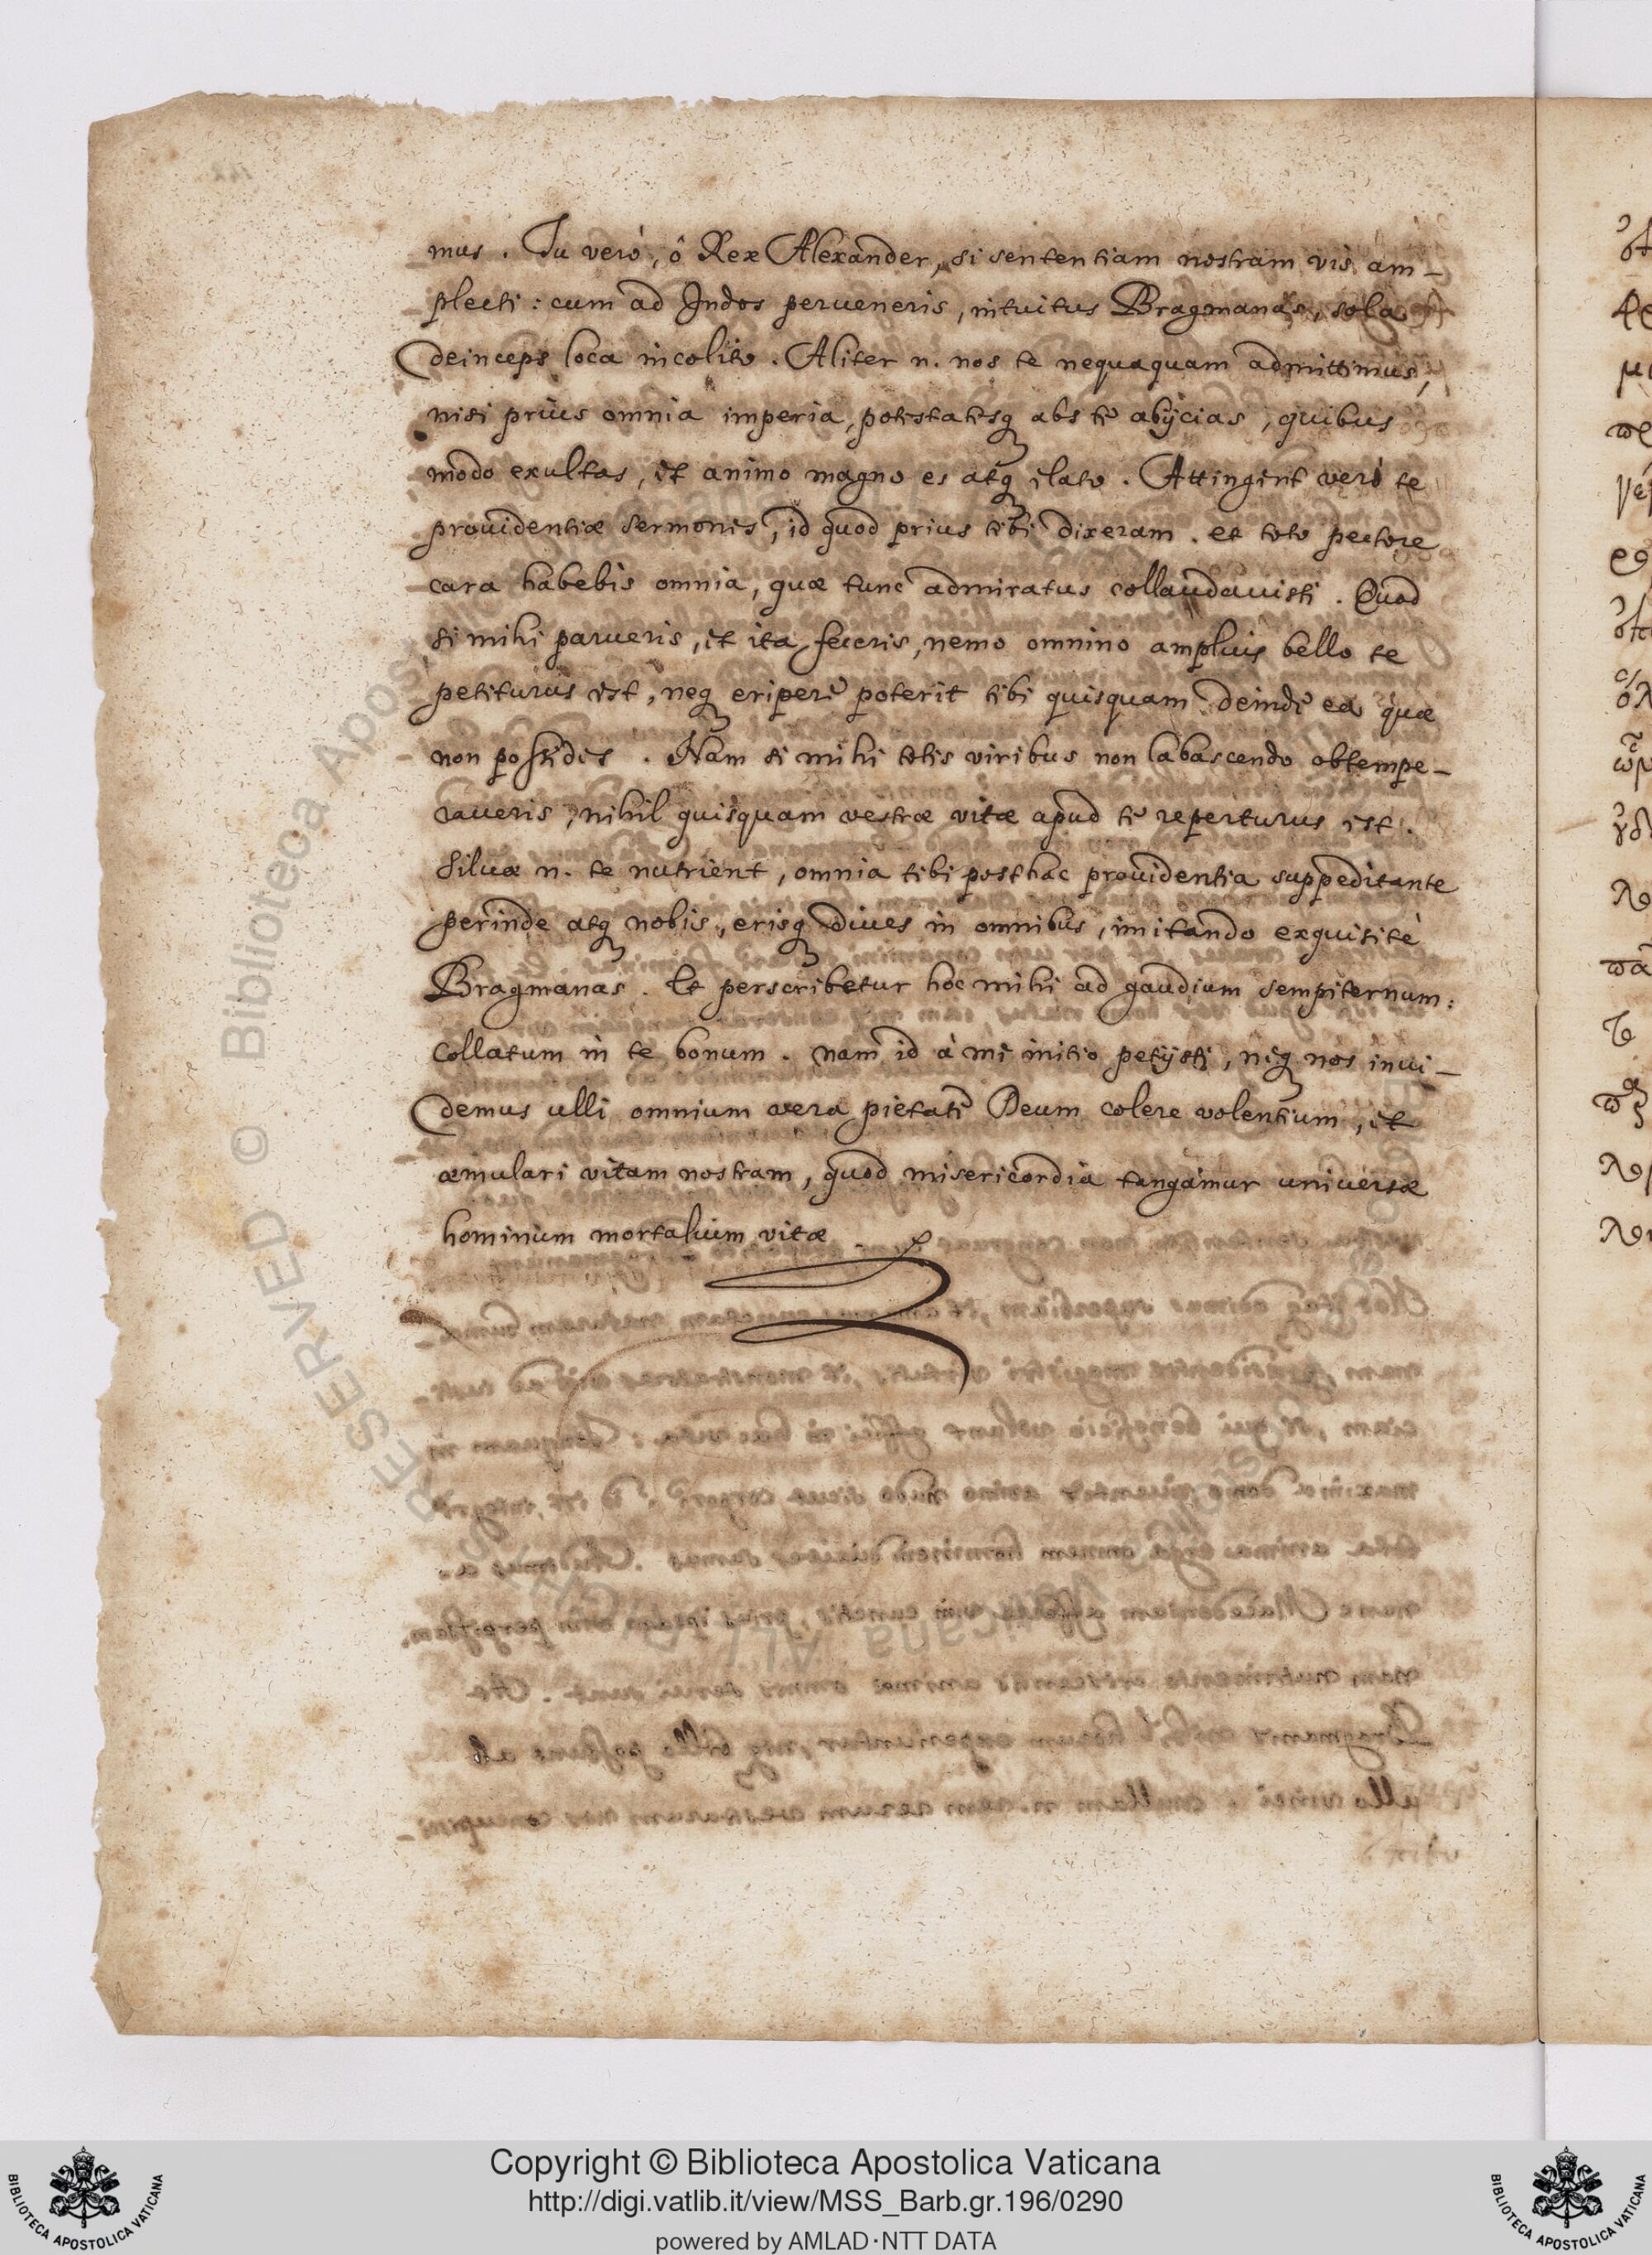 mus . Tu verò, ô Rex Alexander, si sententiam nostram vis am-
plecti : cum ad Indos perueneris, intuitus Bragmanas, sola
deinceps loca incolito . Aliter n. nos te nequaquam admittimus,
nisi priùs omnia imperia, potestatesq abs te abijcias, quibus
modo exultas, et animo magno es atq elato . Attingent verò te
prouidentiæ sermones, id quod prius tibi dixeram . et toto pectore
cara habebis omnia, quæ tunc admiratus collaudauisti . Quod
si mihi parueris, et ita feceris, nemo omnino ampliùs bello te
petiturus est, neq eripere poterit tibi quisquam deinde ea quæ
non possides . Nam si mihi totis viribus non labascendo obtempe-
raueris, nihil quisquam vestræ vitæ apud te reperturus est .
Siluæ n. te nutrient, omnia tibi posthac prouidentia suppeditante
perinde atq nobis, erisq diues in omnibus, imitando exquisitè
Bragmanas . Et perscribetur hoc mihi ad gaudium sempiternum :
collatum in te bonum . nam id à me initio petijsti, neq nos inui-
demus ulli omnium vera pietate Deum colere volentium, et
æmulari vitam nostram, quod misericordia tangamur uniuersæ
hominum mortalium vitæ .
© Biblioteca Apostolica Vaticana ALL RIGHTS RESERVED
Copyright © Biblioteca Apostolica Vaticana
http://digi.vatlib.it/view/MSS_Barb.gr.196/0290
powered by AMLAD·NTT DATA
BIBLIOTECA APOSTOLICA VATICANA
BIBLIOTECA APOSTOLICA VATICANA